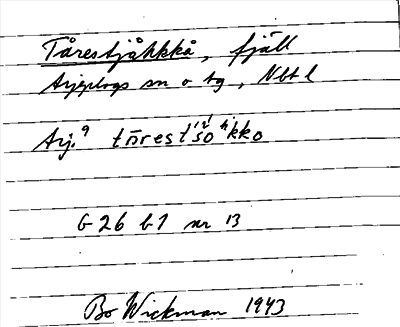 Tårestjåkkå, fjäll
Arjeplogs sn o tg, Nbt l
Arj. 9 tårest'šo'kko
G 26 b 1 nr 13
Bo Wickman 1943